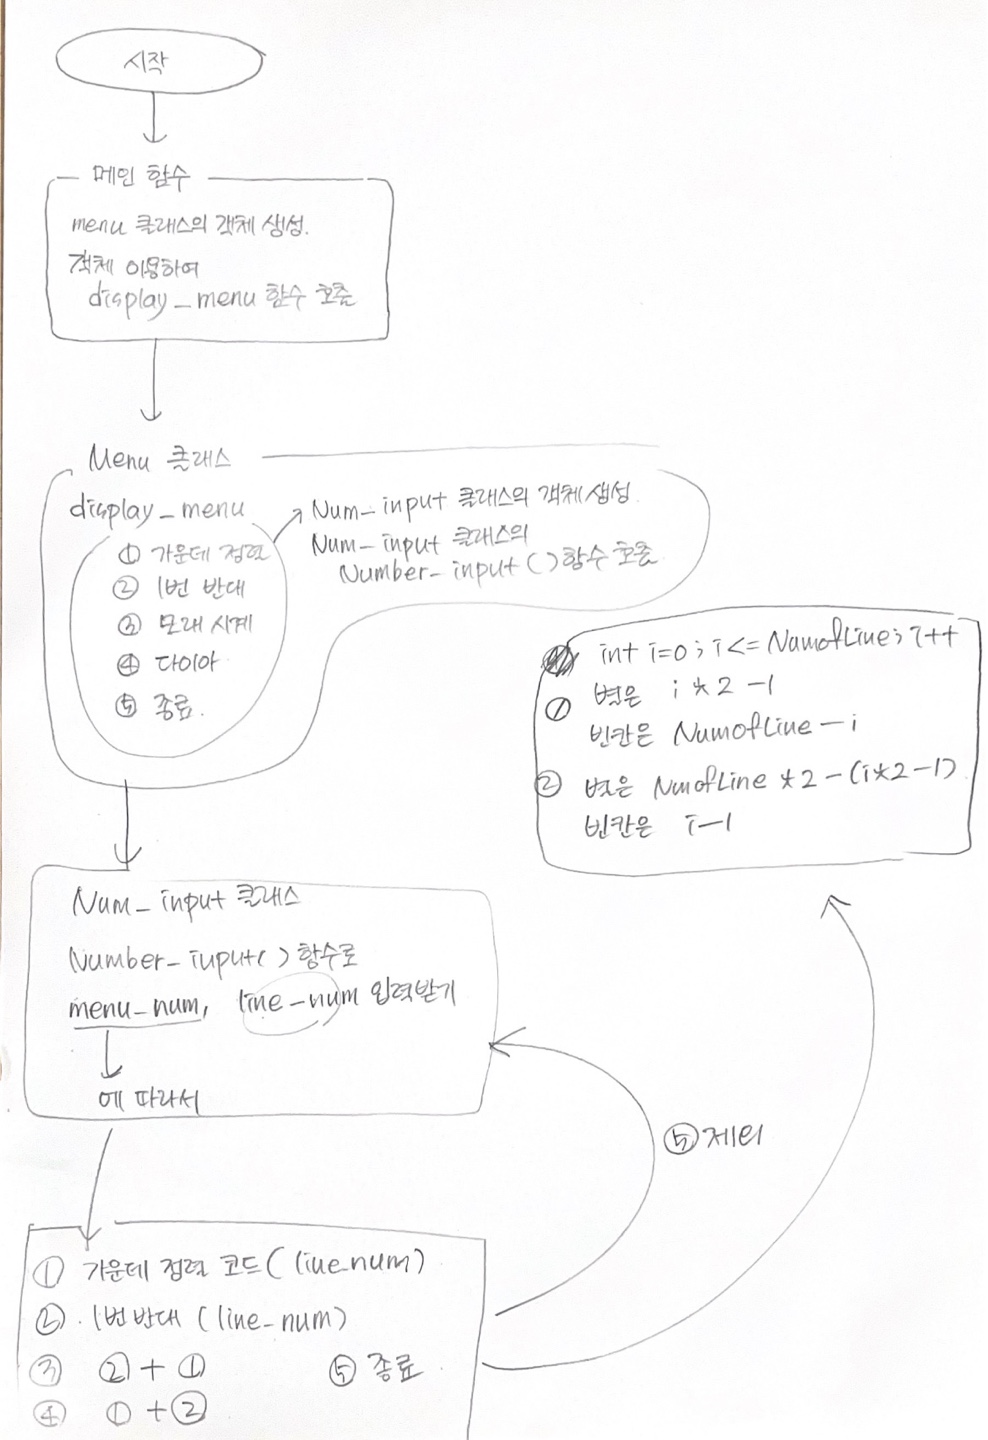 시작
메인 함수
menu 클래스의 객체 생성.
객체 이용하여
display_menu 함수 호출
Menu 클래스
display_menu
① 가운데 정렬
② 1번 반대
③ 모래시계
④ 다이아
⑤ 종료.
Num_input 클래스의 객체 생성.
Num_input 클래스의
Number_input()함수 호출
int i=0; i<=NumofLine; i++
① 별은 i*2-1
빈칸은 NumofLine-i
② 별은 NumofLine*2-(i*2-1)
빈칸은 i-1
Num_input 클래스
Number_input()함수로
menu_num, line_num 입력받기
에 따라서
⑤제외
① 가운데 정렬 코드(line_num)
② 1번 반대 (line_num)
③ ②+① ⑤ 종료
④ ①+②